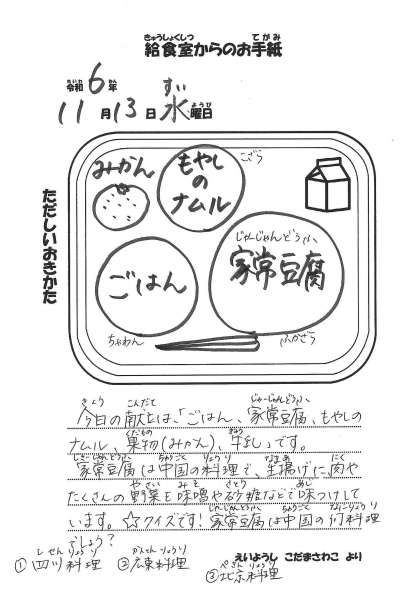 きゅうしょくしつ てがみ
給食室からのお手紙
れいわ ねん
令和6年
すい
11月13日 水曜日
ようび
みかん
もやし
の
ナムル
こざら
じゃーじゃんどうふ
家常豆腐
ごはん
ちゃわん
ふかざら
ただしいおきかた
きょう こんだて じゃーじゃんどうふ
今日の献立は、「ごはん、家常豆腐、もやしの
くだもの ぎゅう
ナムル、果物(みかん)、牛乳」です。
じゃーじゃんどうふ ちゅうごく りょうり なまあ にく
家常豆腐は中国の料理で、生揚げに肉や
やさい みそ さとう あじ
たくさんの野菜を味噌や砂糖などで味つけして
じゃーじゃんどうふ ちゅうごく なにりょうり
います。☆クイズです!家常豆腐は中国の何料理
でしょう?
しせんりょうり かんとんりょうり ぺきんりょうり
①四川料理 ②広東料理 ③北京料理
えいようし こだまさわこ より